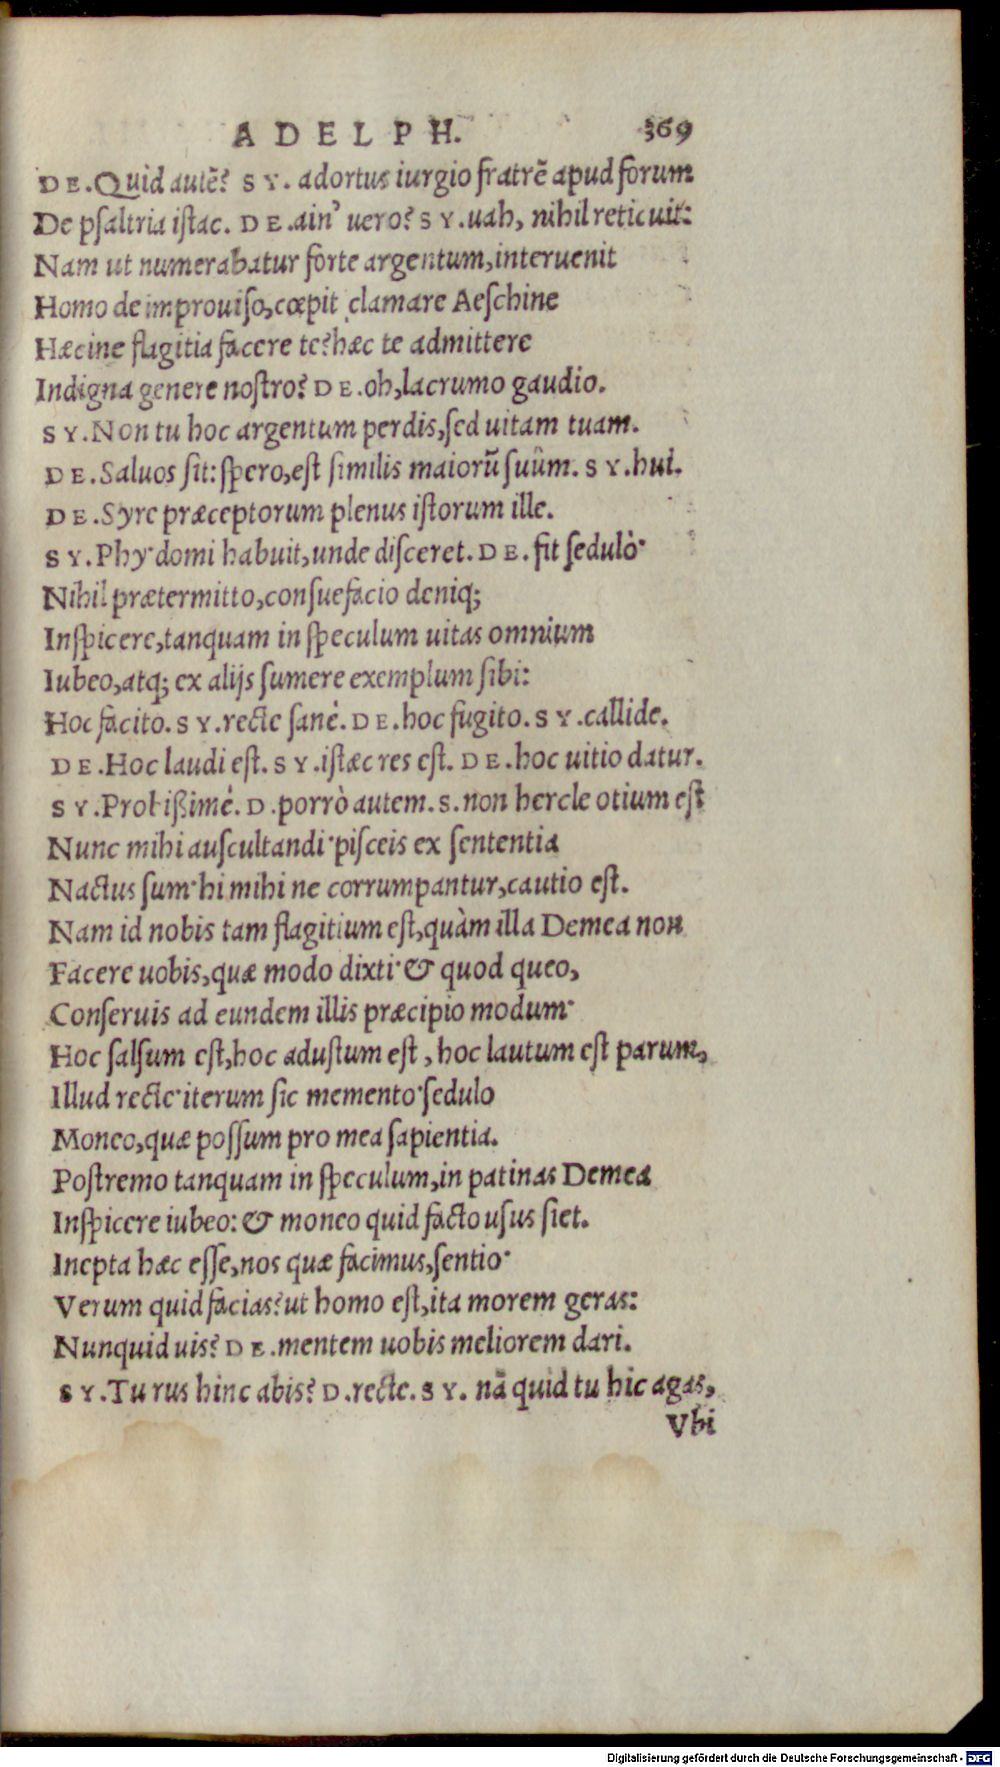 ADELPH. 369
DE. Quid autẽ? SY. adortus iurgio fratrẽ apud forum
De psaltria istac. DE. ain' uero? SY. uah, nihil reticuit:
Nam ut numerabatur forte argentum, interuenit
Homo de improuiso, cœpit clamare Aeschine
Hæcine flagitia facere te? hæc te admittere
Indigna genere nostro? DE. oh, lacrumo gaudio.
SY. Non tu hoc argentum perdis, sed uitam tuam.
DE. Saluos sit: spero, est similis maiorũ suûm. SY. hui.
DE. Syre præceptorum plenus istorum ille.
SY. Phy· domi habuit, unde disceret. DE. fit sedulò·
Nihil prætermitto, consuefacio deniq;
Inspicere, tanquam in speculum uitas omnium
Iubeo, atq; ex alijs sumere exemplum sibi:
Hoc facito. SY. recte sanè. DE. hoc fugito. SY. callide.
DE. Hoc laudi est. SY. istæc res est. DE. hoc uitio datur.
SY. Probißimè. D. porrò autem. S. non hercle otium est
Nunc mihi auscultandi· pisceis ex sententia
Nactus sum· hi mihi ne corrumpantur, cautio est.
Nam id nobis tam flagitium est, quàm illa Demea non
Facere uobis, quæ modo dixti· & quod queo,
Conseruis ad eundem illis præcipio modum·
Hoc salsum est, hoc adustum est, hoc lautum est parum,
Illud recte· iterum sic memento· sedulo
Moneo, quæ possum pro mea sapientia.
Postremo tanquam in speculum, in patinas Demea
Inspicere iubeo: & moneo quid facto usus siet.
Inepta hæc esse, nos quæ facimus, sentio·
Verum quid facias? ut homo est, ita morem geras:
Nunquid uis? DE. mentem uobis meliorem dari.
SY. Tu rus hinc abis? D. recte. SY. nã quid tu hic agas,
Vbi
Digitalisierung gefördert durch die Deutsche Forschungsgemeinschaft - DFG